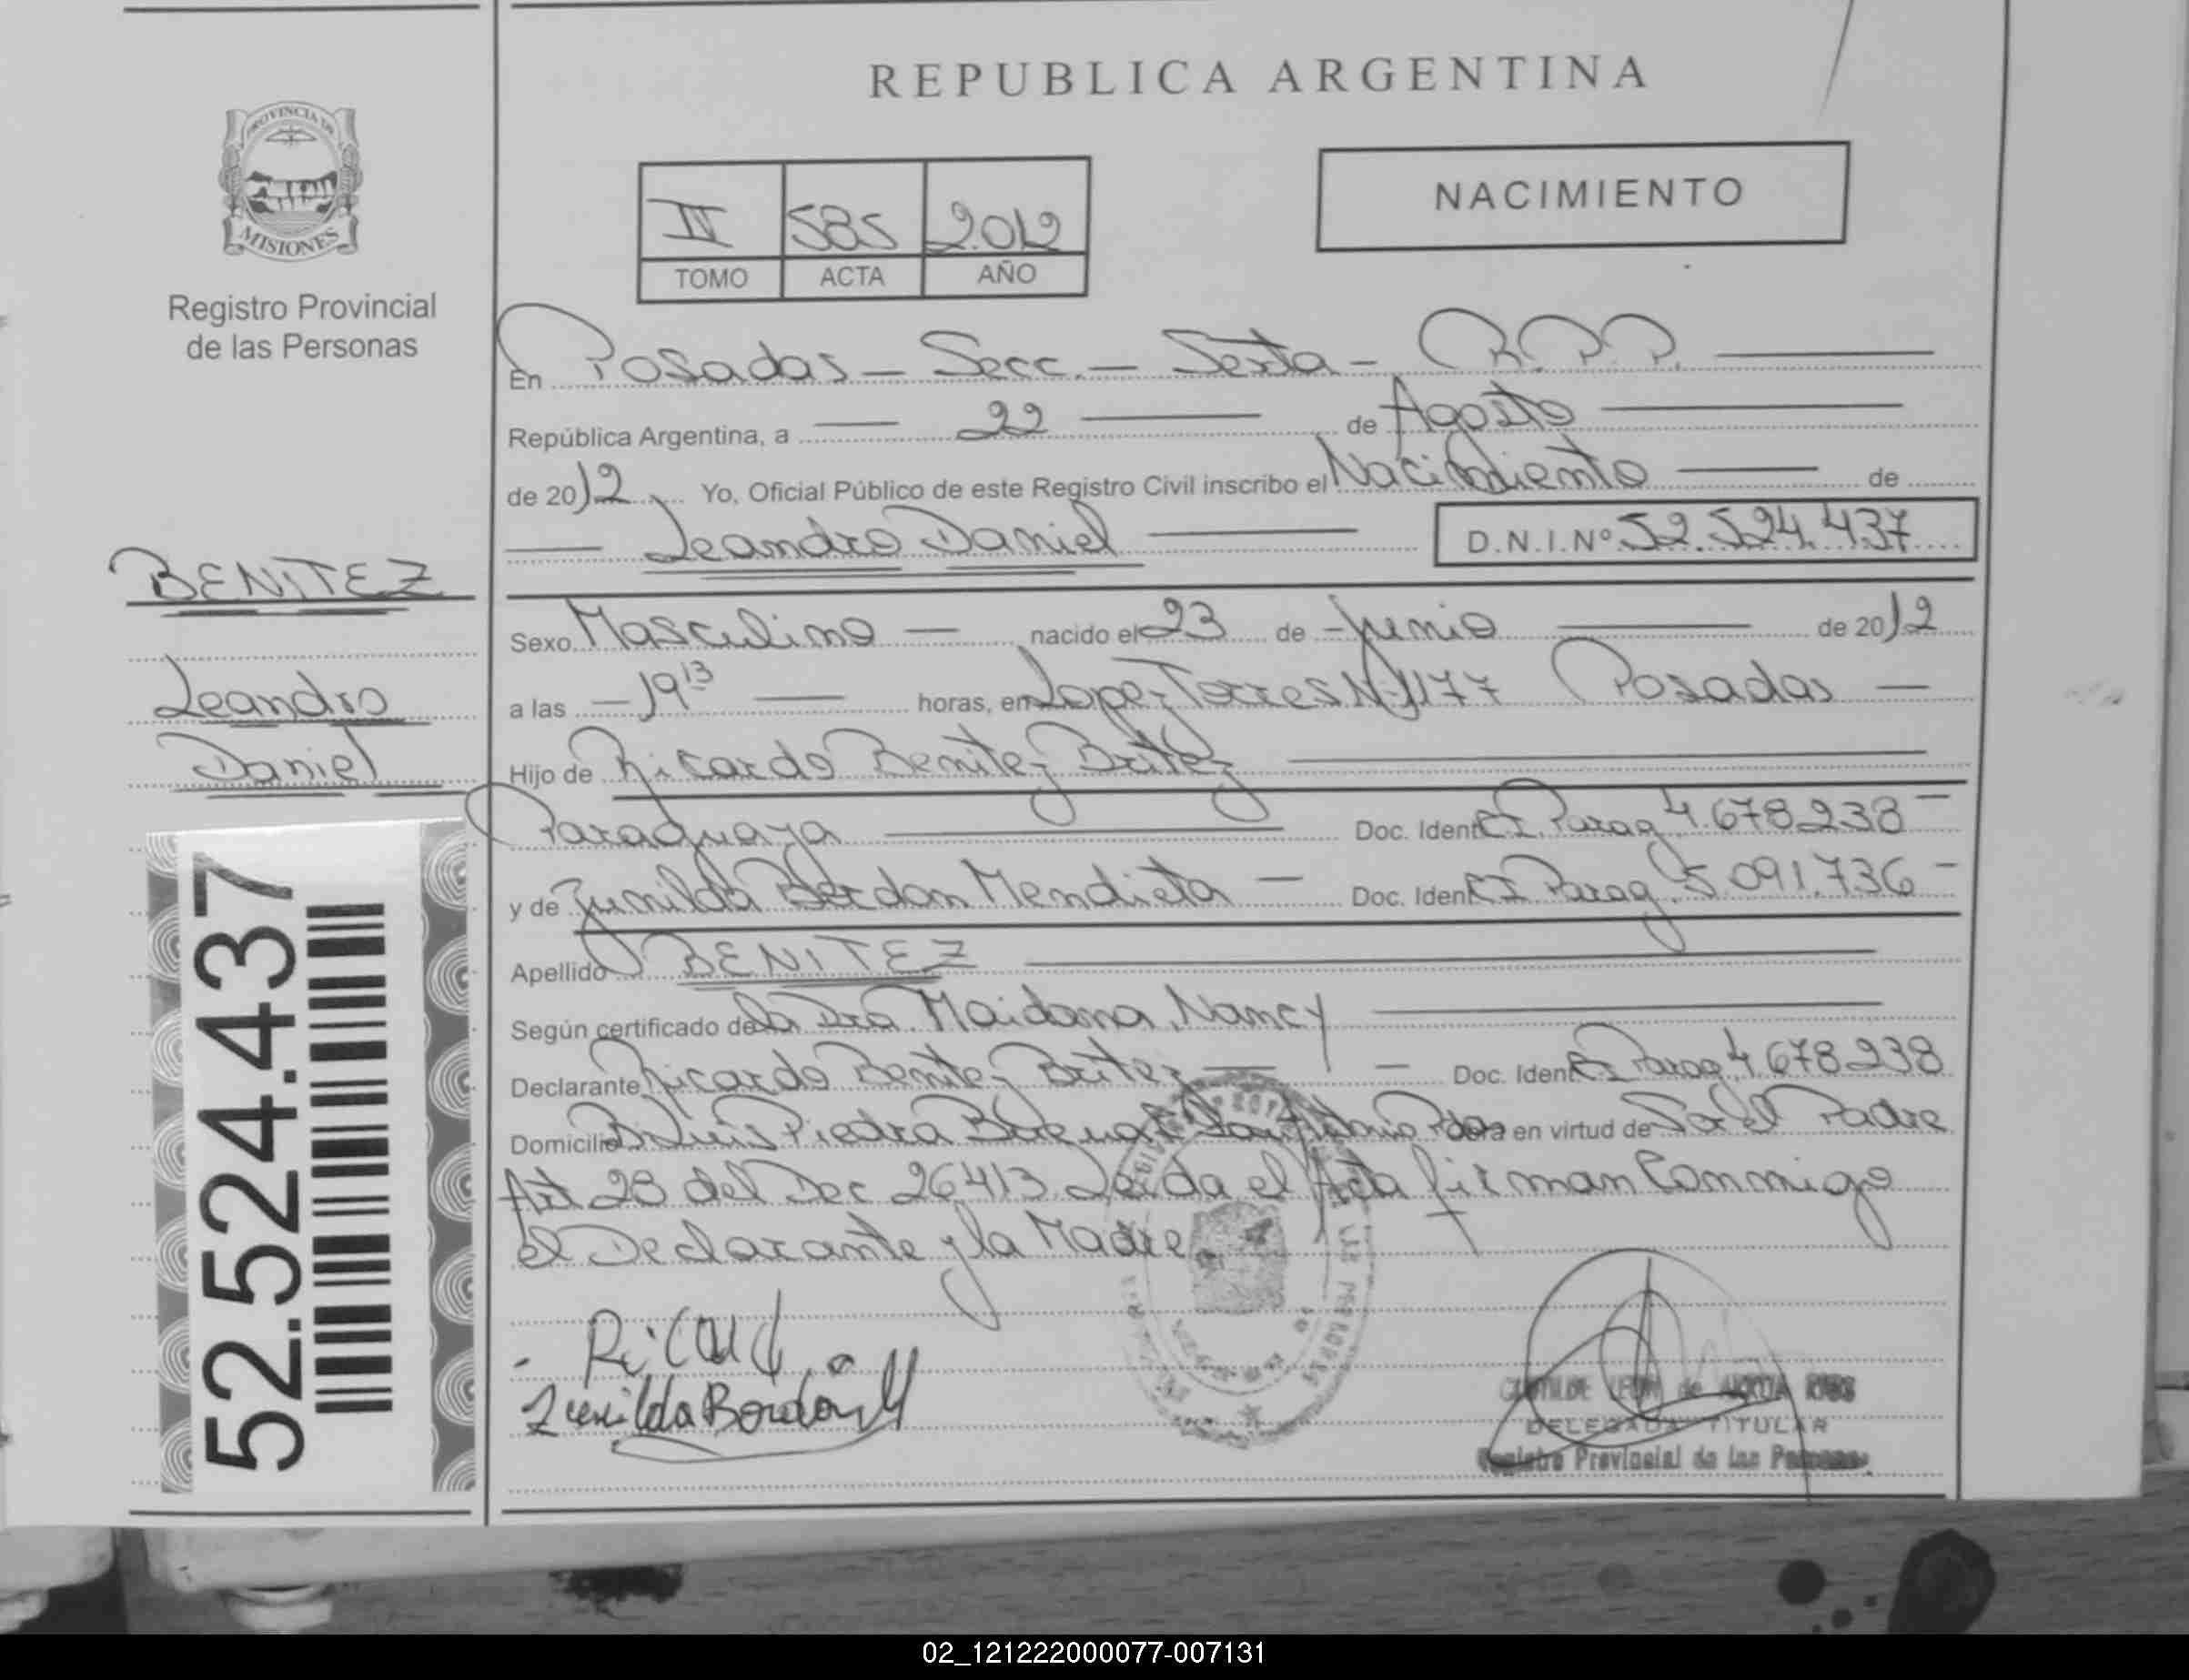 REPUBLICA ARGENTINA
PROVINCIA DE
MISIONES
Registro Provincial
de las Personas
NACIMIENTO
IV 585 2012
TOMO ACTA AÑO
En Posadas - Secc. - Sexta - R.P.P.
República Argentina, a 22 de Agosto
de 2012 Yo, Oficial Público de este Registro Civil inscribo el Nacimiento de
Leandro Daniel D.N.I.Nº 52.524.437
BENITEZ
Leandro
Daniel
52.524.437
Sexo Masculino - nacido el 23 de Junio de 2012
a las - 19 13 horas, en Lopez Torres Nº 1177 Posadas -
Hijo de Ricardo Benitez Britez
Paraguaya Doc. Ident. CI. Parag 4.678.238 -
y de Zunilda Bordon Mendieta - Doc. Ident. CI Parag. 5.091.736 -
Apellido BENITEZ
Según certificado de la Dra Maidana, Nancy
Declarante Ricardo Benitez Britez - Doc. Ident. CI Parag 4.678.238
Domicilio Piedra Buena San Antonio Pdas en virtud de Ser el Padre
Art 28 del Dec 26413 Leida el Acta firman Conmigo
el Declarante y la Madre
Ricardo
Zunilda Bordón M
DELEGADA TITULAR
Registro Provincial de las Personas
02_121222000077-007131